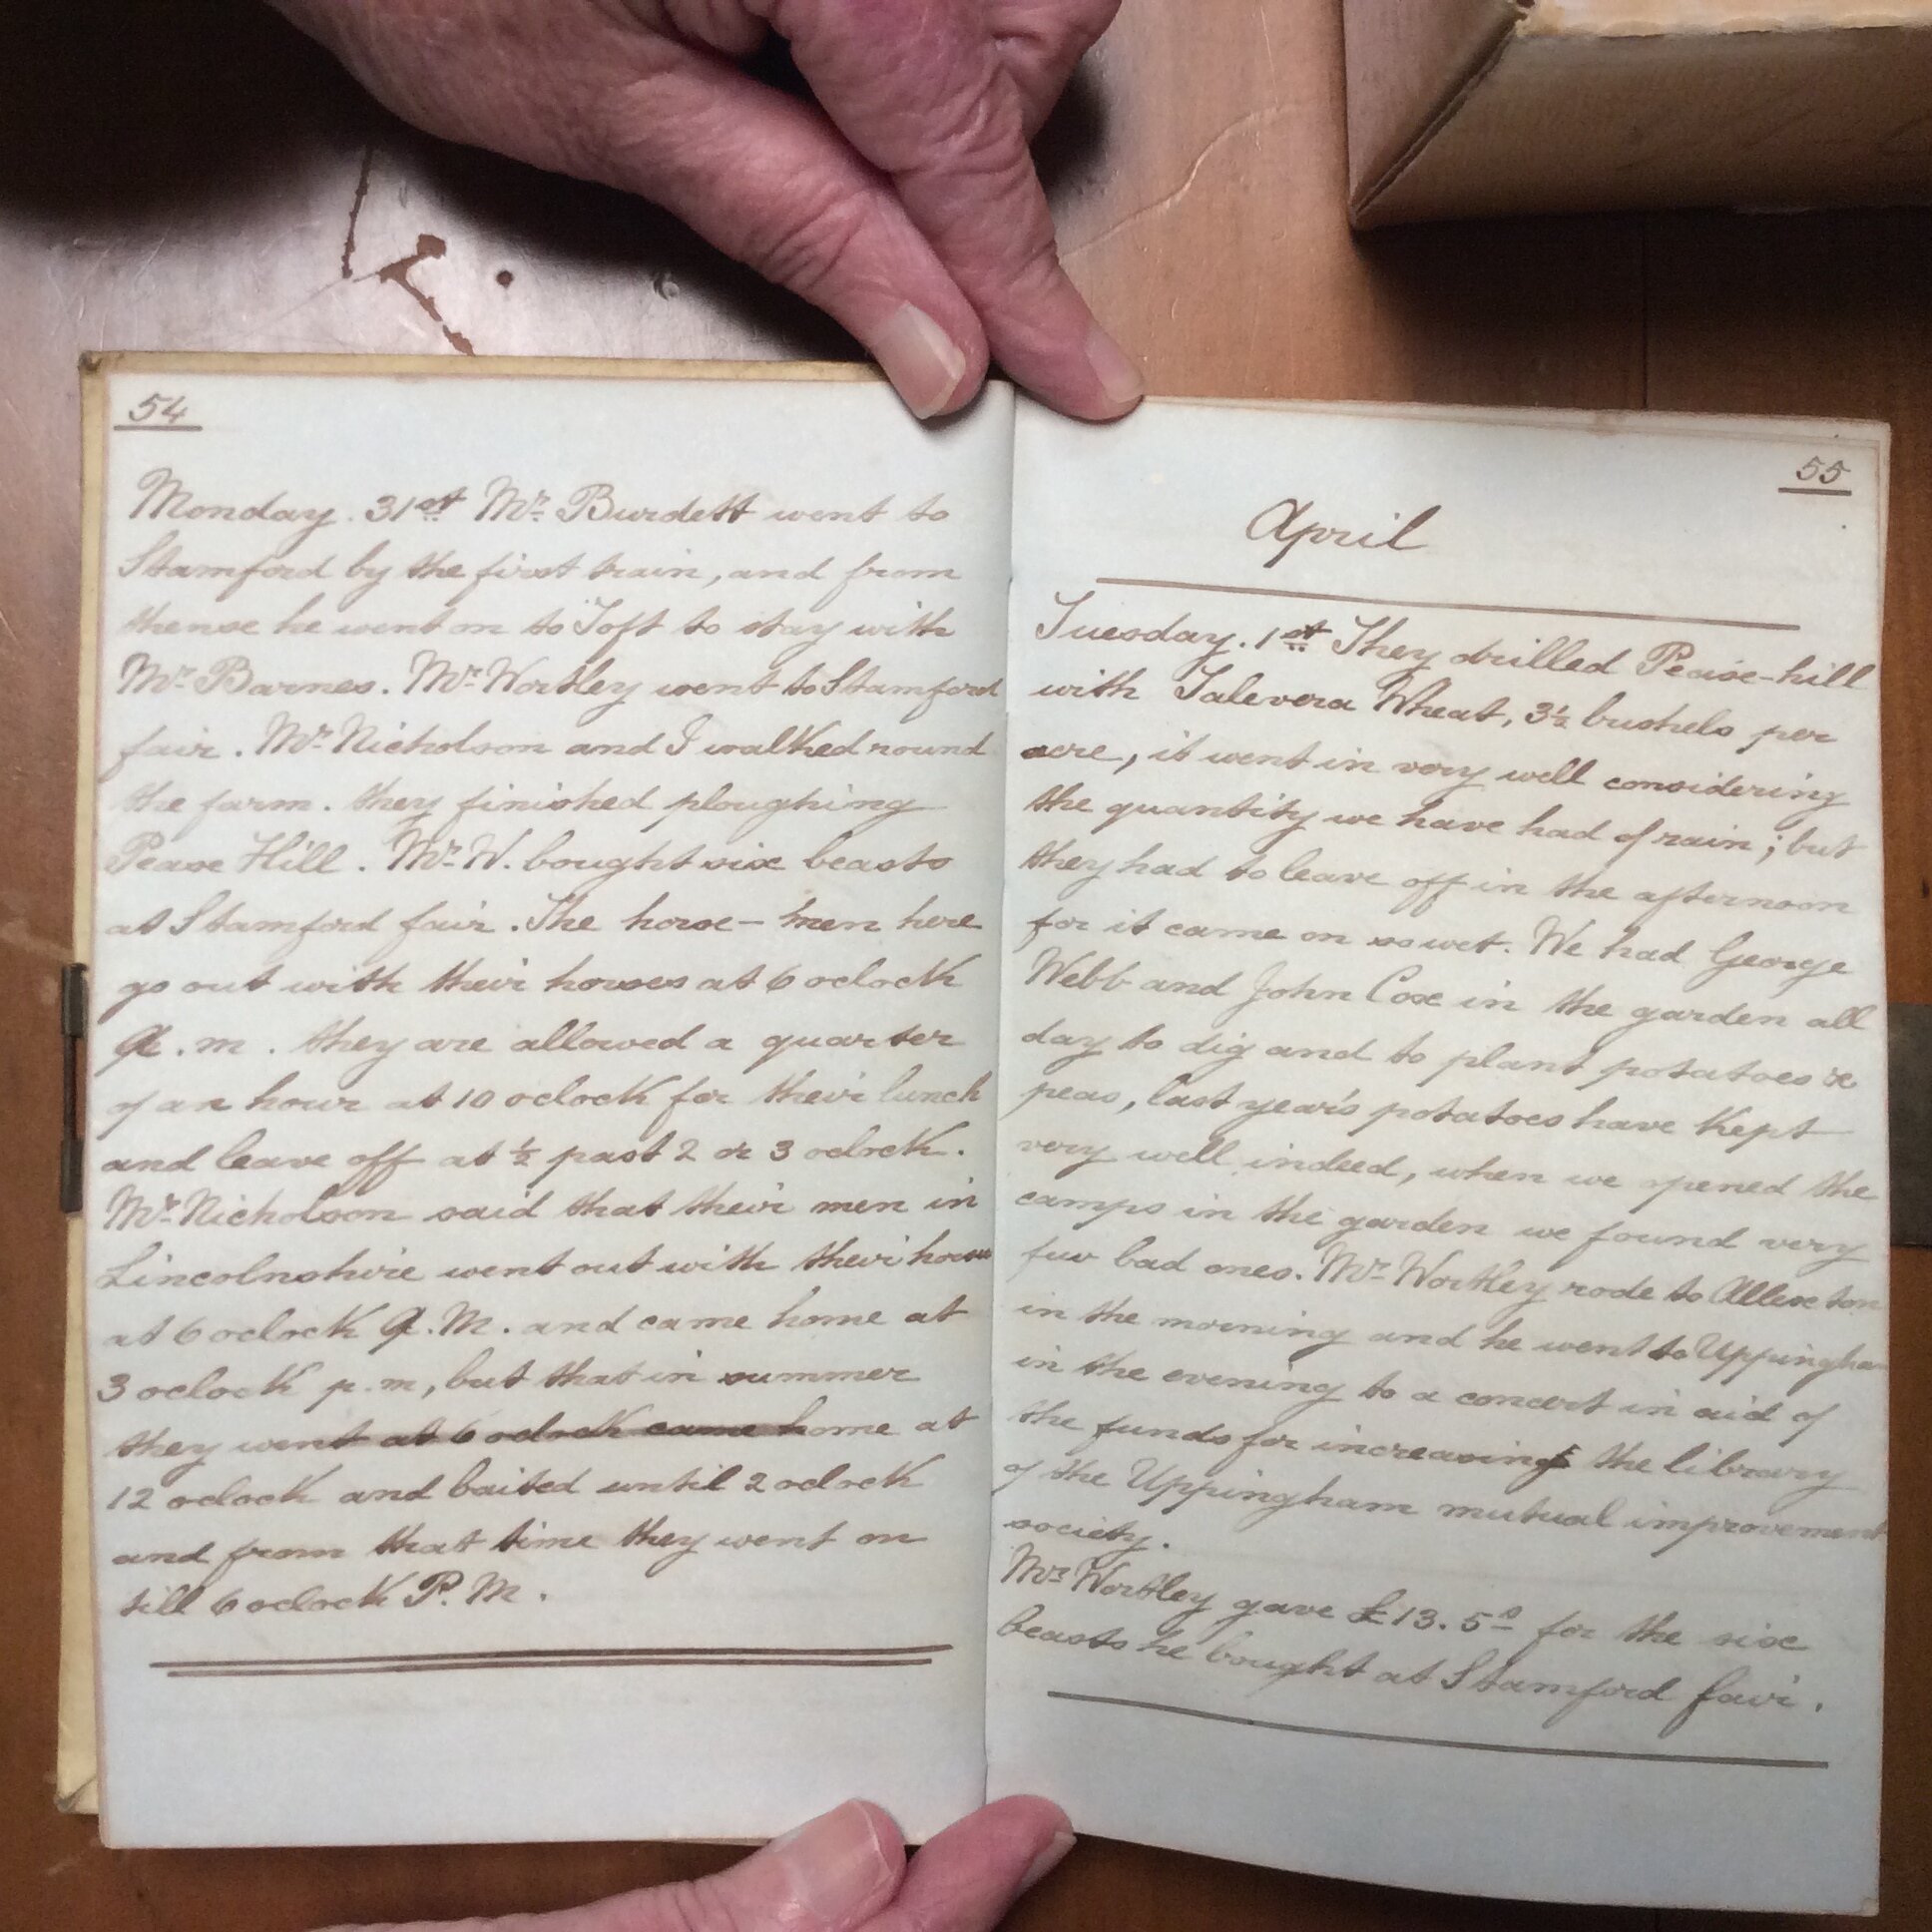 54
Monday. 31st Mr. Burdett went to
Stamford by the first train, and from
thense he went on to Toft to stay with
Mr. Barnes. Mr. Wortley went to Stamford
fair. Mr. Nicholson and I walked round
the farm. they finished ploughing
Pease Hill. Mr. W. bought six beasts
at Stamford fair. The horse-men here
go out with their horses at 6 oclock
a.m. they are allowed a quarter
of an hour at 10 oclock for their lunch
and leave off at ½ past 2 or 3 oclock.
Mr. Nicholson said that their men in
Lincolnshire went out with their horses
at 6 oclock A.M. and came home at
3 oclock p.m, but that in summer
they went at 6 oclock came home at
12 oclock and baited until 2 oclock
and from that time they went on
till 6 oclock P.M.
55
April
Tuesday. 1st They drilled Pease-hill
with Talevera Wheat, 3½ bushels per
acre, it went in very well considering
the quantity we have had of rain; but
they had to leave off in the afternoon
for it came on so wet. We had George
Webb and John Cox in the garden all
day to dig and to plant potatoes &
peas, last year's potatoes have kept
very well indeed, when we opened the
camps in the garden we found very
few bad ones. Mr. Wortley rode to Allexton
in the morning and he went to Uppingham
in the evening to a concert in aid of
the funds for increasing the library
of the Uppingham mutual improvement
society.
Mr. Wortley gave £13. 5s for the six
beasts he bought at Stamford fair.